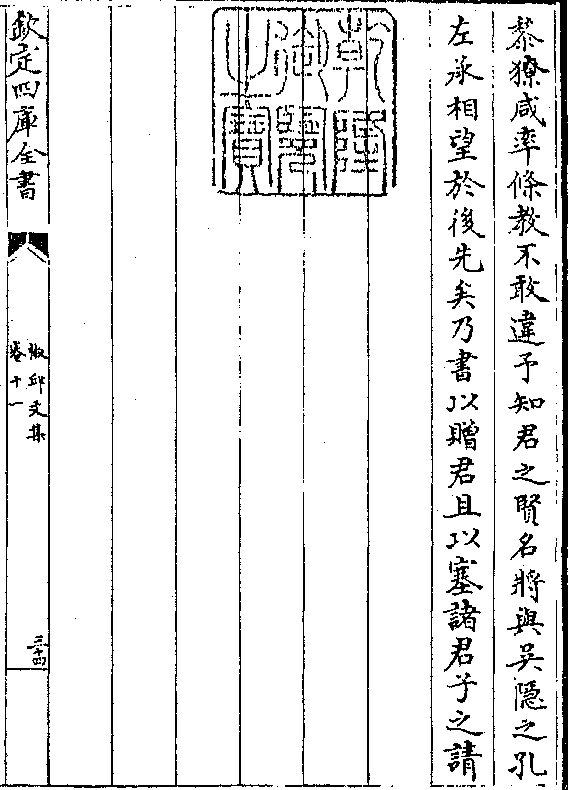 黎獠咸率條教不敢違予知君之賢名將與吳隱之孔
左丞相望於後先矣乃書以贈君且以塞諸君子之請
乾隆御覽之寶
欽定四庫全書
椒邱文集
卷十一
三十四